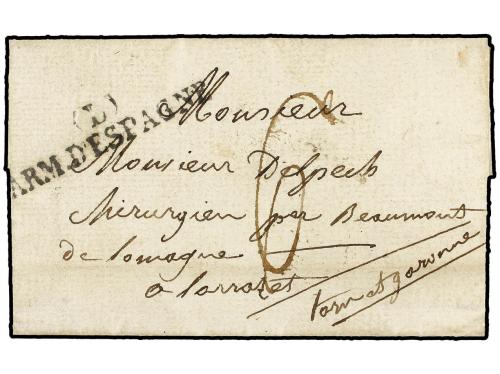 (L)
ARM. D'ESPAGNE
Monsieur
Monsieur Despech
chirurgien par Beaumont
de lomagne
a larrazet
tarn et garonne
6